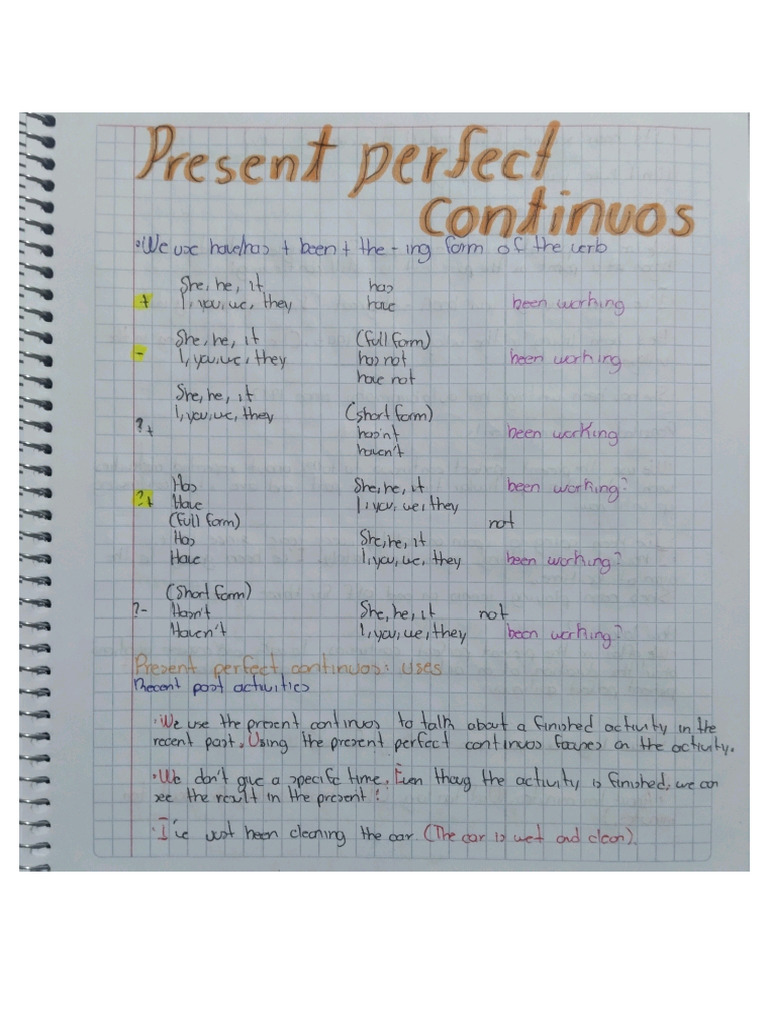 Present perfect
continuos
• We use have/has + been + the -ing form of the verb
She, he, it has
+ I, you, we, they have been working
She, he, it (full form)
- I, you, we, they has not been working
have not
She, he, it
I, you, we, they (short form)
?+ hasn't been working
haven't
Has She, he, it been working?
?+ Have I, you, we, they
(full form) not
Has She, he, it
Have I, you, we, they been working?
(short form)
?- Hasn't She, he, it not
Haven't I, you, we, they been working?
Present perfect continuos: uses
Recent past activities
• We use the present continuos to talk about a finished activity in the
recent past. Using the present perfect continuos focuses on the activity.
• We don't give a specific time. Even thoug the activity is finished, we can
see the result in the present!
• I've just been cleaning the car. (The car is wet and clean).